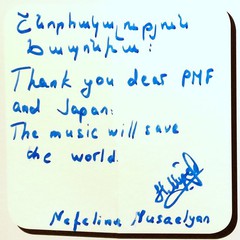 Շնորհակալություն
Ճապոնիա:
Thank you dear PMF
and Japan:
The music will save
the world.
Nefelina Musaelyan